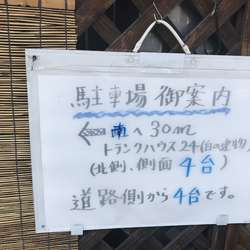 駐車場御案内
← 南へ30m
トランクハウス24(白の建物)
(北側、側面 4台)
道路側から4台です。